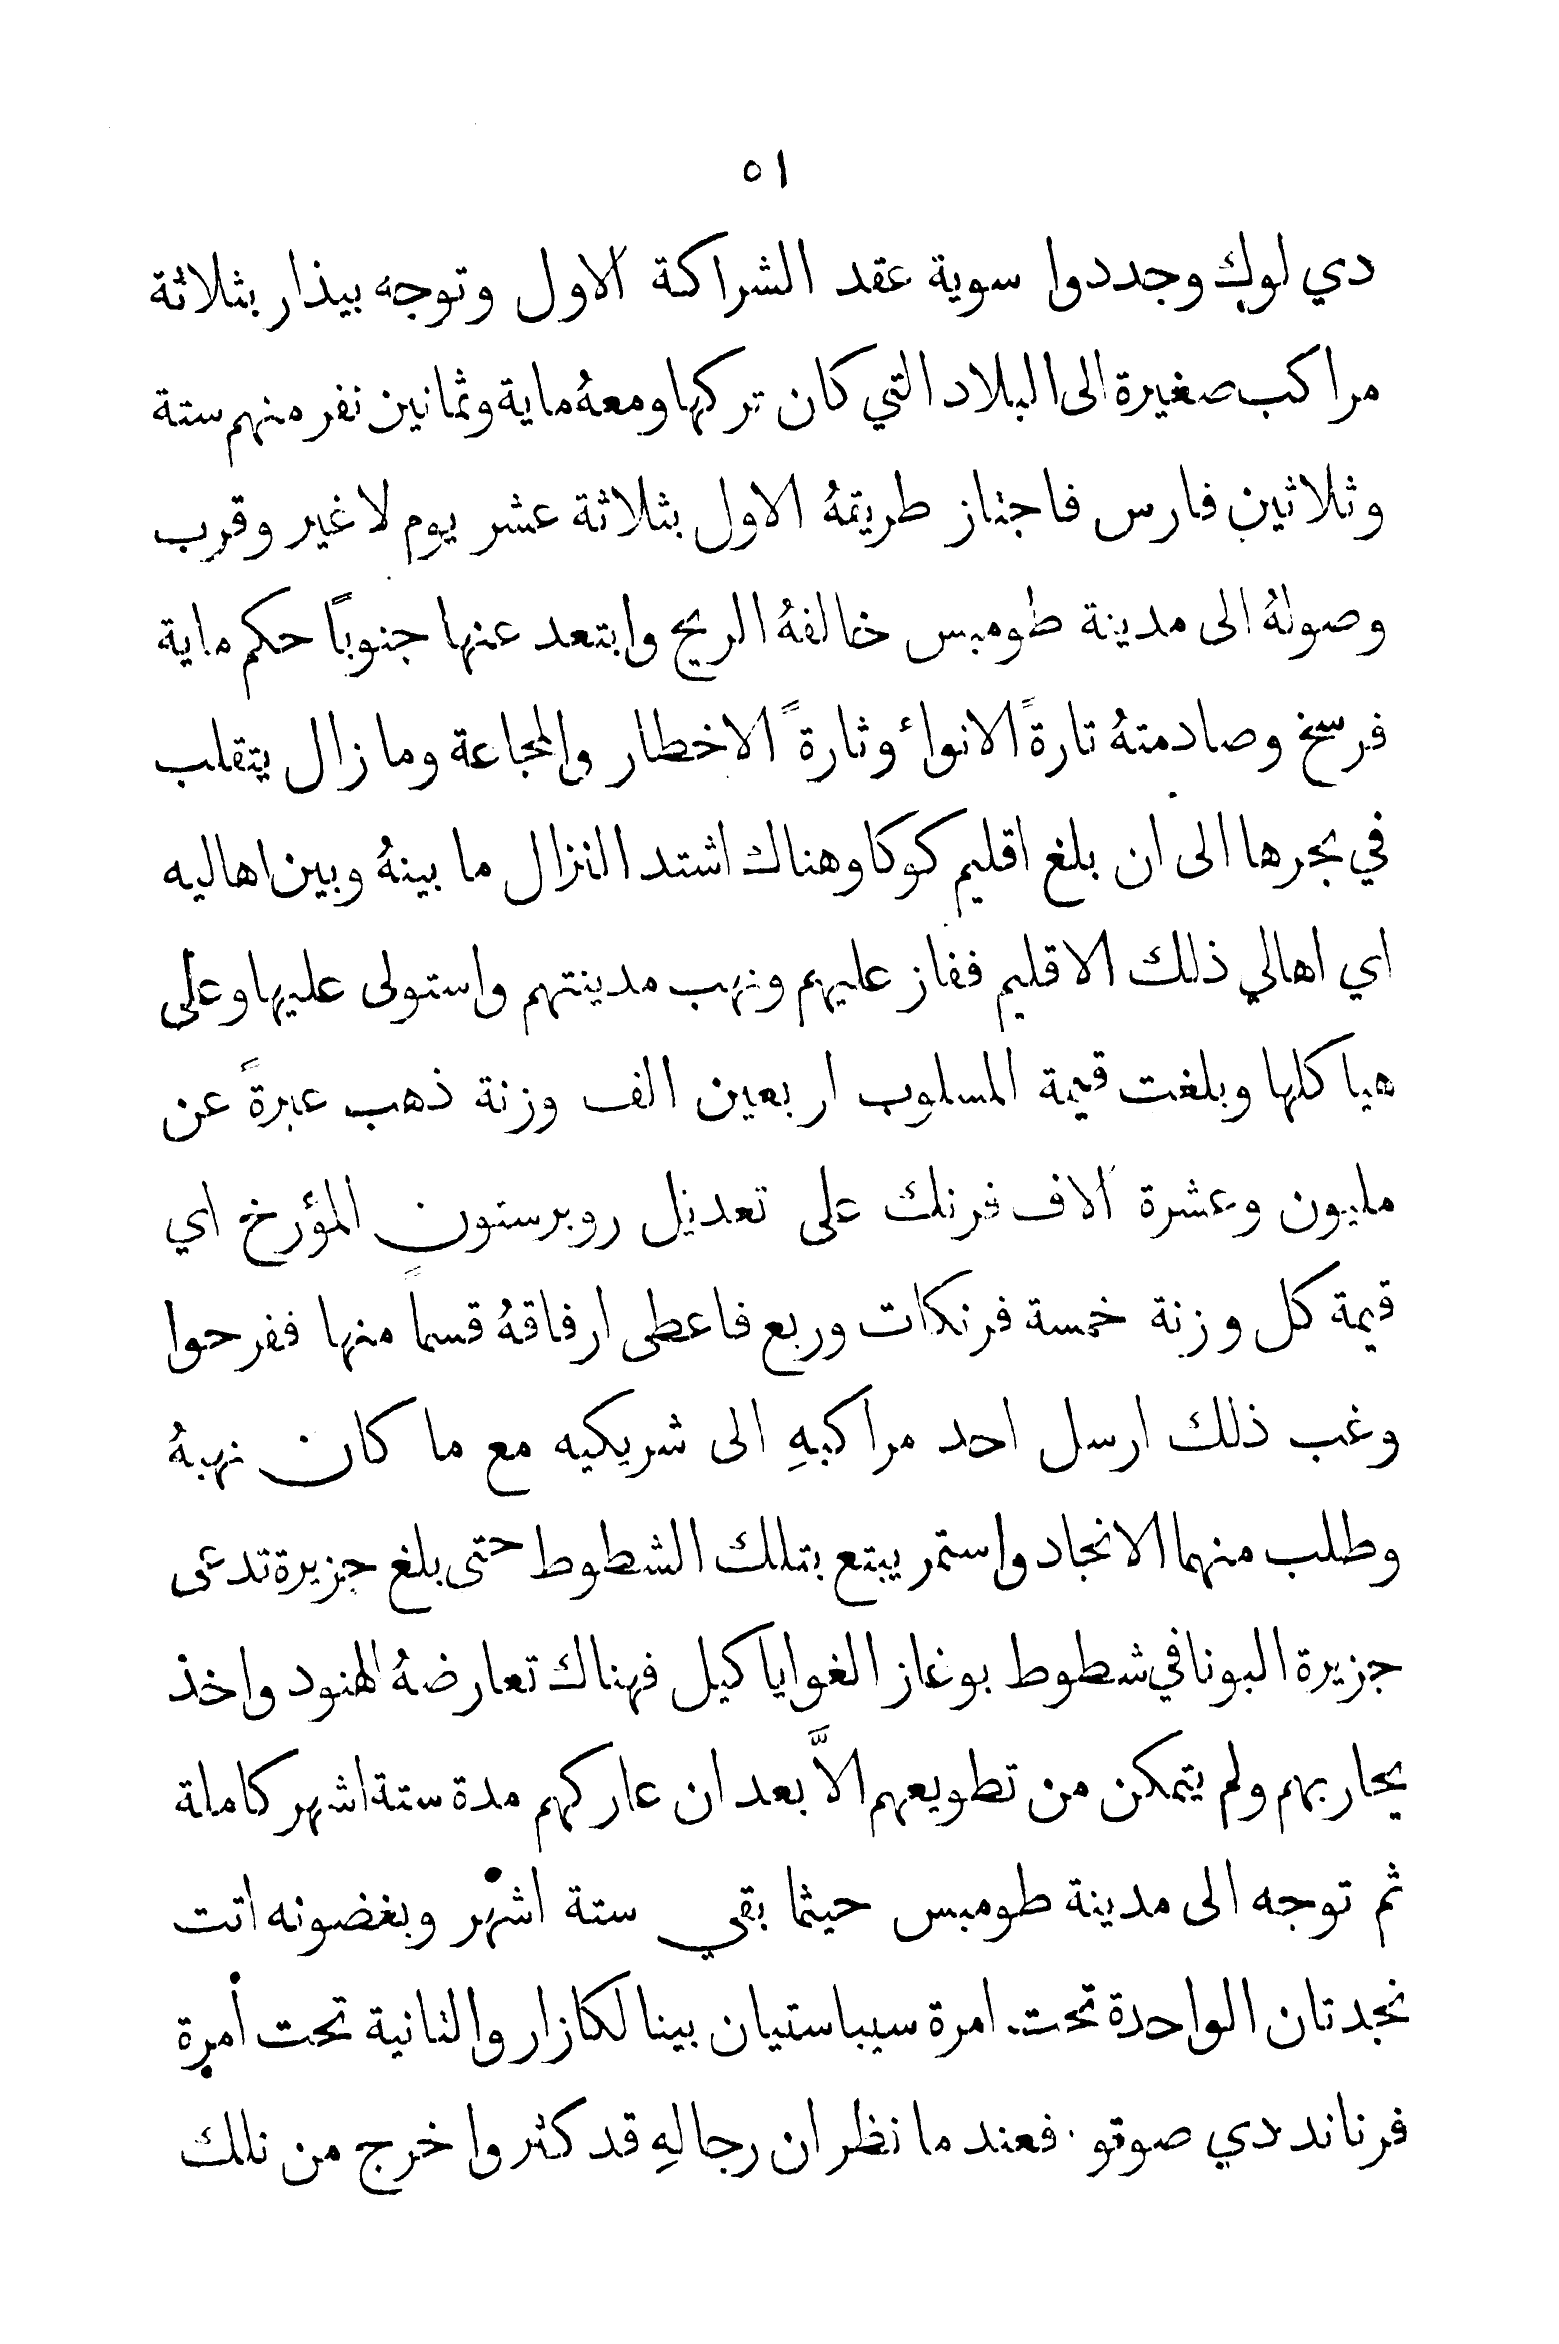 ٥١
دي لوك وجددوا سوية عقد الشراكة الاول وتوجه بيذار بثلاثة
مراكب صغيرة الى البلاد التي كان تركها ومعهُ ماية وثمانين نفر منهم ستة
وثلاثين فارس فاجتاز طريقهُ الاول بثلاثة عشر يوم لا غير وقرب
وصولهُ الى مدينة طومبس خالفهُ الريح وابتعد عنها جنوباً حكم ماية
فرسخ وصادمتهُ تارةً الانواء وتارةً الاخطار والمجاعة وما زال يتقلب
في بحرها الى ان بلغ اقليم كوكا وهناك اشتد النزال ما بينهُ وبين اهاليه
اي اهالي ذلك الاقليم ففاز عليهم ونهب مدينتهم واستولى عليها وعلى
هياكلها وبلغت قيمة المسلوب اربعين الف وزنة ذهب عبرةً عن
مليون وعشرة آلاف فرنك على تعديل روبرستون المؤرخ اي
قيمة كل وزنة خمسة فرنكات وربع فاعطى ارفاقهُ قسماً منها ففرحوا
وغب ذلك ارسل احد مراكبهِ الى شريكيه مع ما كان نهبهُ
وطلب منهما الانجاد واستمر يبتع بتلك الشطوط حتى بلغ جزيرة تدعى
جزيرة البونا في شطوط بوغاز الغواياكيل فهناك تعارضهُ الهنود واخذ
يحاربهم ولم يتمكن من تطويعهم الاَّ بعد ان عاركهم مدة ستة اشهر كاملة
ثم توجه الى مدينة طومبس حيثما بقي ستة اشهر وبغضونه اتت
نجدتان الواحدة تحت امرة سيباستيان بينالكازار والثانية تحت أمرة
فرناند دي صوتو . فعند ما نظر ان رجالهِ قد كثروا خرج من تلك